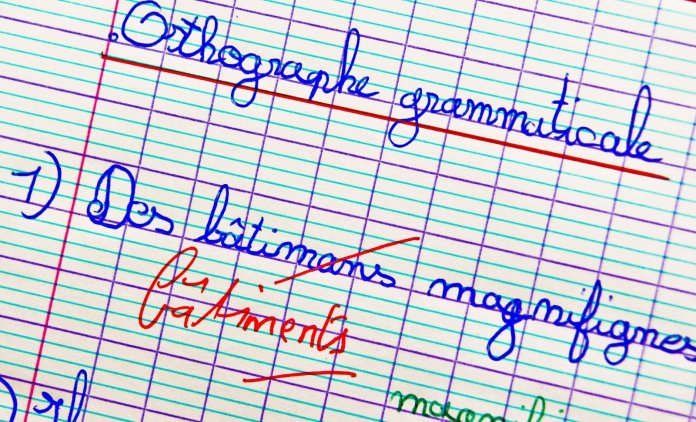 . Orthographe grammaticale
1) Des bâtimans magnifignes
bâtiments